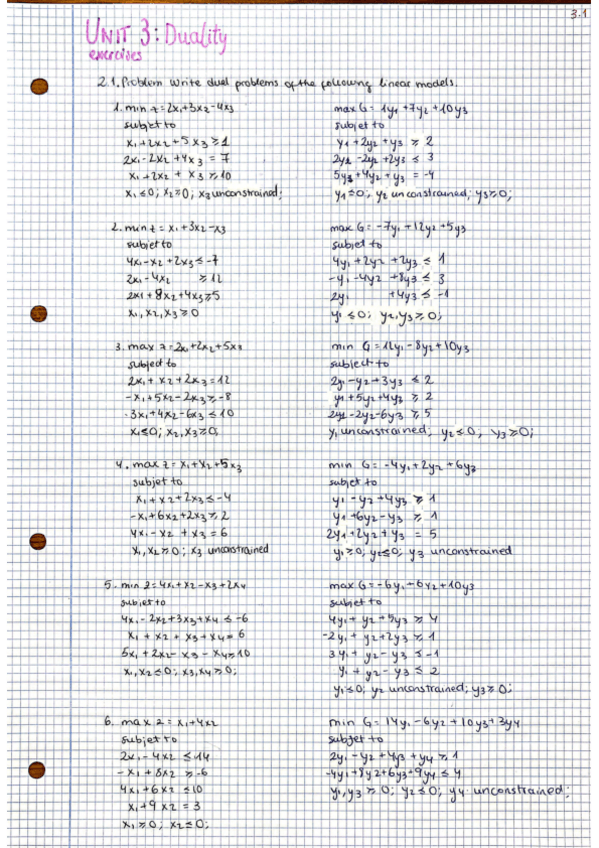 3.1
UNIT 3: Duality
exercises
2.1. Problem Write dual problems of the following linear models.
1. min z = 2x₁+3x₂-4x₃
subjet to
x₁+2x₂+5x₃ ≥ 1
2x₁-2x₂+4x₃ = 7
x₁+2x₂ + x₃ ≥ 10
x₁ ≤ 0; x₂ ≥ 0; x₃ unconstrained;
max G = 1y₁+7y₂+10y₃
subjet to
y₁+2y₂+y₃ ≥ 2
2y₁ -2y₂ +2y₃ ≤ 3
5y₁+4y₂+y₃ = -4
y₁ ≥ 0; y₂ unconstrained; y₃ ≥ 0;
2. min z = x₁+3x₂-x₃
subjet to
4x₁-x₂+2x₃ ≤ -7
2x₁-4x₂ ≥ 12
2x₁+8x₂+4x₃ ≥ 5
x₁, x₂, x₃ ≥ 0
max G = -7y₁+12y₂+5y₃
subjet to
4y₁+2y₂+2y₃ ≤ 1
-y₁-4y₂+8y₃ ≤ 3
2y₁ +4y₃ ≤ -1
y₁ ≤ 0; y₂, y₃ ≥ 0;
3. max z = 2x₁+2x₂+5x₃
subject to
2x₁+x₂+2x₃ = 12
-x₁+5x₂-2x₃ ≥ -8
-3x₁+4x₂-6x₃ ≤ 10
x₁ ≤ 0; x₂, x₃ ≥ 0;
min G = 12y₁-8y₂+10y₃
subject to
2y₁-y₂+3y₃ ≤ 2
y₁+5y₂+4y₃ ≥ 2
2y₁-2y₂-6y₃ ≥ 5
y₁ unconstrained; y₂ ≤ 0; y₃ ≥ 0;
4. max z = x₁+x₂+5x₃
subjet to
x₁+x₂+2x₃ ≤ -4
-x₁+6x₂+2x₃ ≥ 2
4x₁-x₂+x₃ = 6
x₁, x₂ ≥ 0; x₃ unconstrained
min G = -4y₁+2y₂+6y₃
subjet to
y₁-y₂+4y₃ ≥ 1
y₁+6y₂-y₃ ≥ 1
2y₁+2y₂+y₃ = 5
y₁ ≥ 0; y₂ ≤ 0; y₃ unconstrained
5. min z = 4x₁+x₂-x₃+2x₄
subjet to
4x₁-2x₂+3x₃+x₄ ≤ -6
x₁+x₂+x₃+x₄ = 6
5x₁+2x₂-x₃-x₄ ≥ 10
x₁, x₂ ≤ 0; x₃, x₄ ≥ 0;
max G = -6y₁+6y₂+10y₃
subjet to
4y₁+y₂+5y₃ ≥ 4
-2y₁+y₂+2y₃ ≥ 1
3y₁+y₂-y₃ ≤ -1
y₁+y₂-y₃ ≤ 2
y₁ ≤ 0; y₂ unconstrained; y₃ ≥ 0;
6. max z = x₁+4x₂
subjet to
2x₁-4x₂ ≤ 14
-x₁+8x₂ ≥ -6
4x₁+6x₂ ≤ 10
x₁+9x₂ = 3
x₁ ≥ 0; x₂ ≤ 0;
min G = 14y₁-6y₂+10y₃+3y₄
subjet to
2y₁-y₂+4y₃+y₄ ≥ 1
-4y₁+8y₂+6y₃+9y₄ ≤ 4
y₁, y₃ ≥ 0; y₂ ≤ 0; y₄ unconstrained;